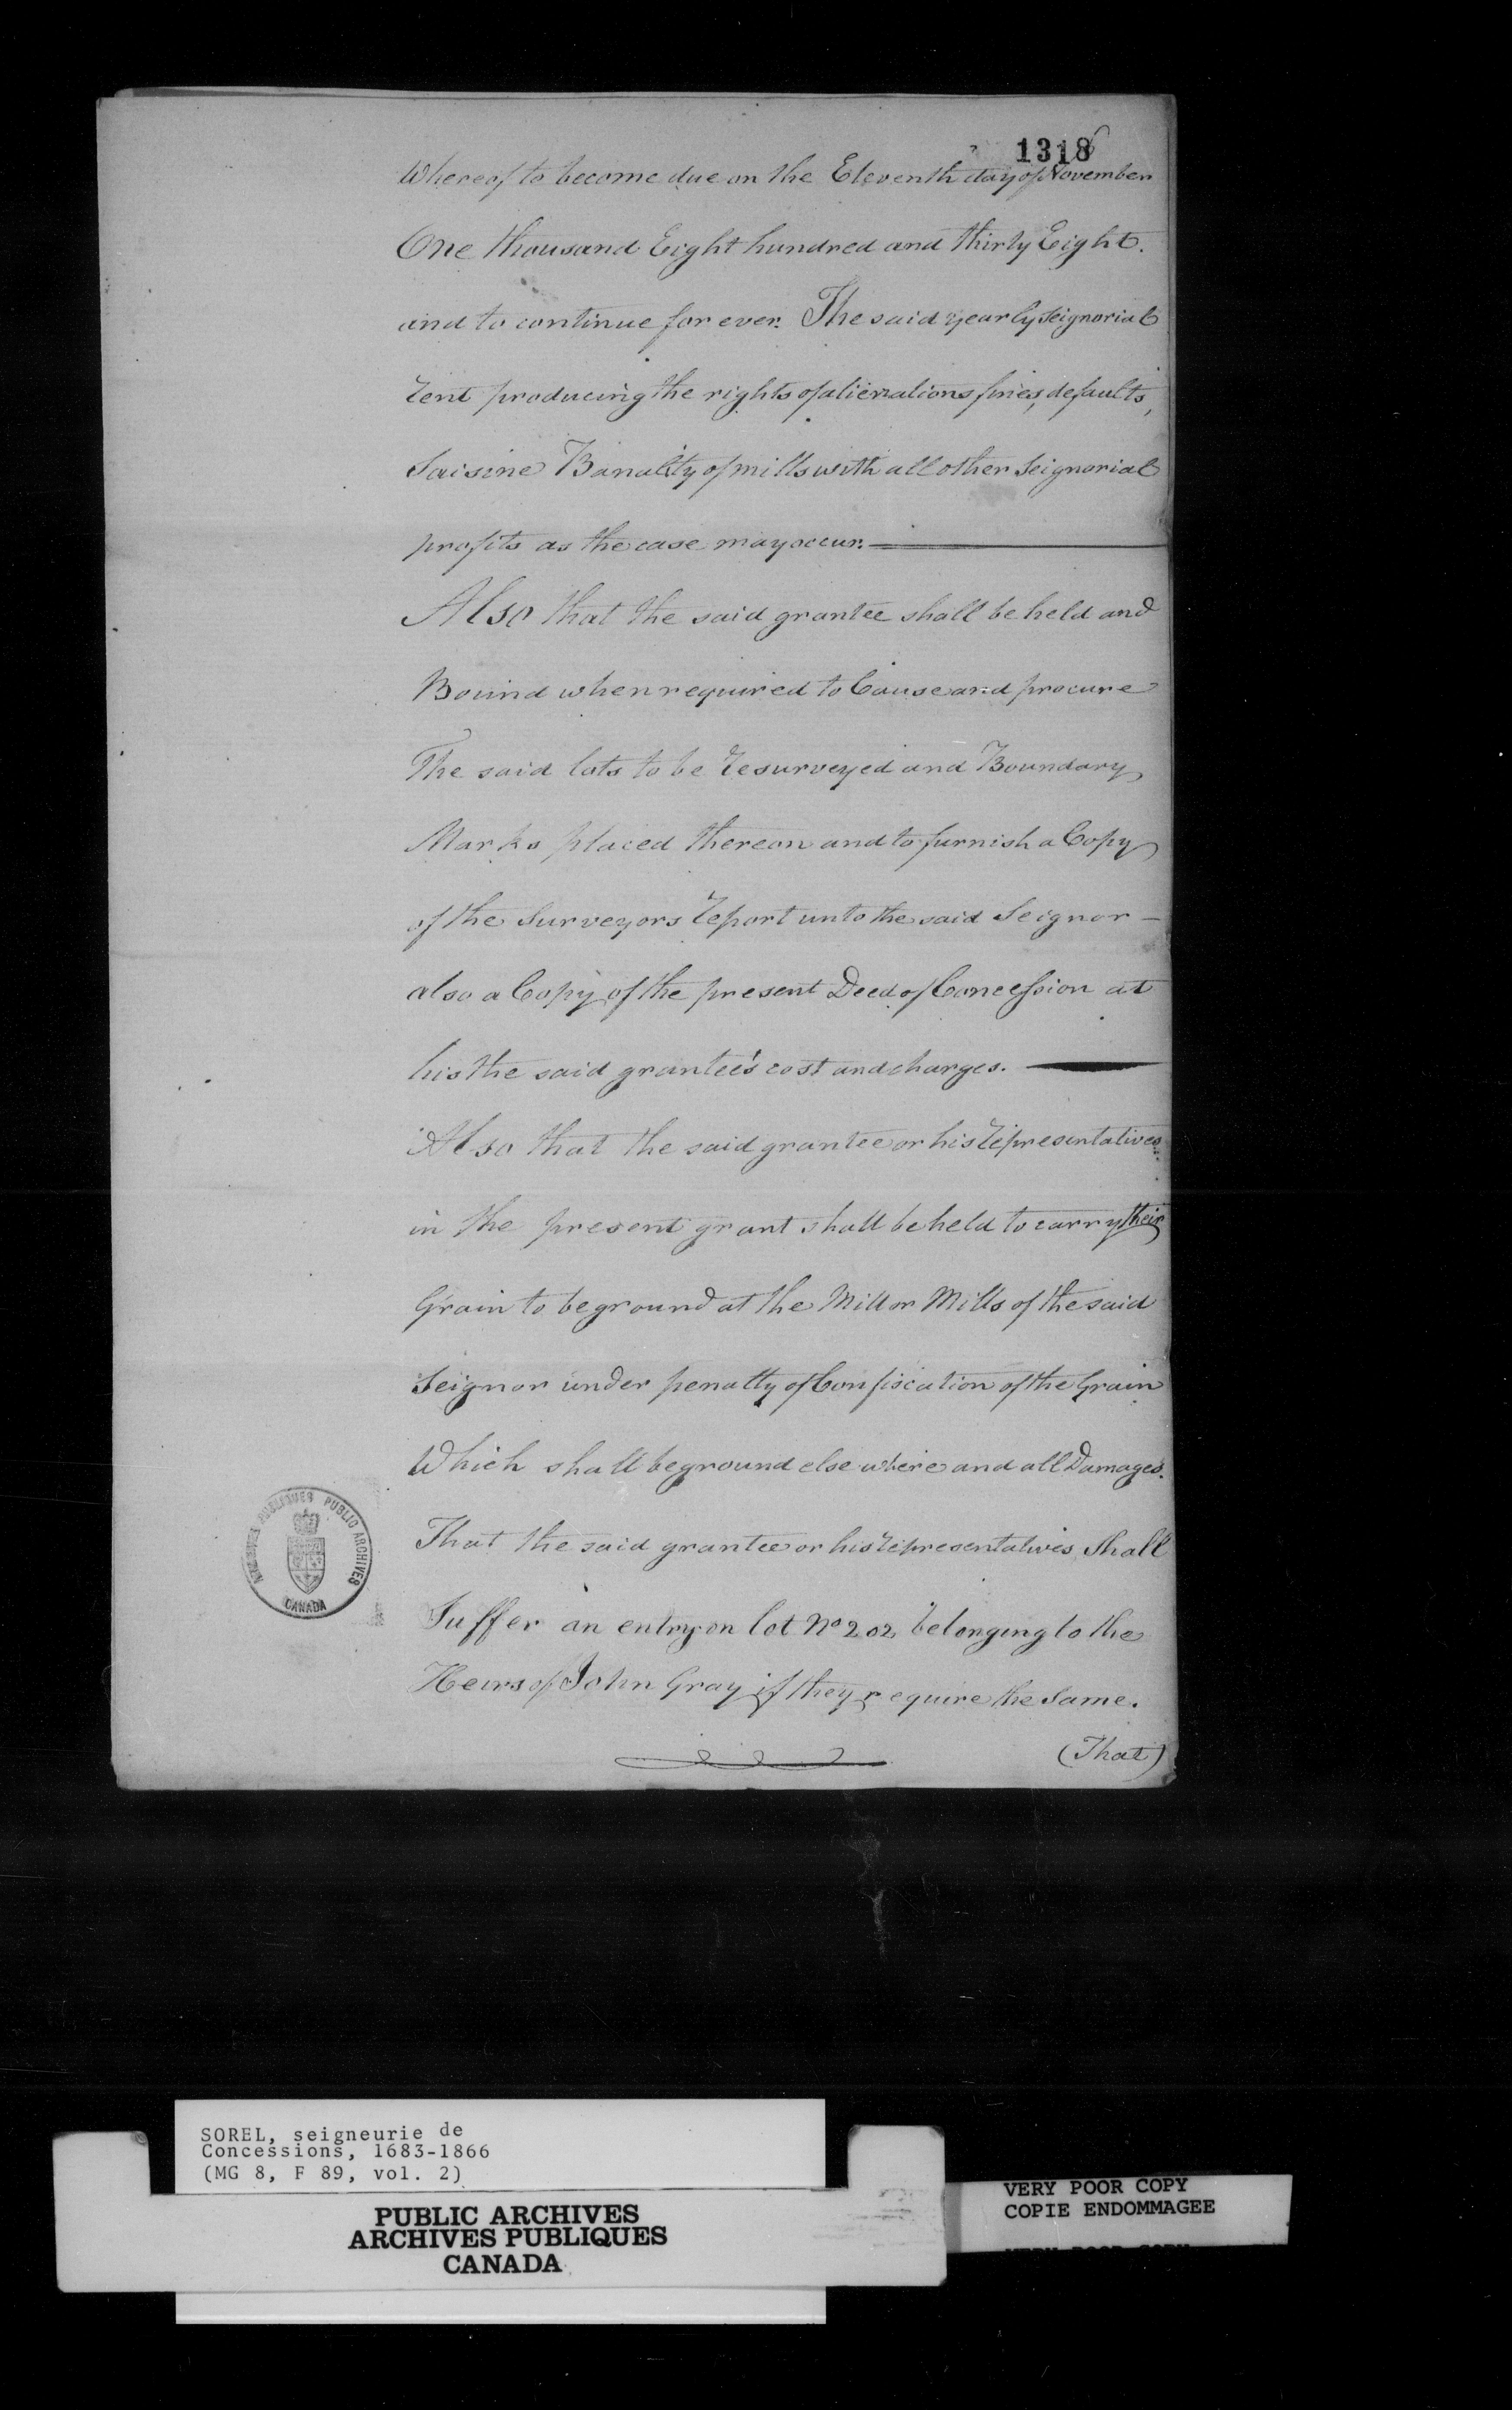 1318
Whereof to become due on the Eleventh day of November
One thousand Eight hundred and thirty Eight.
and to continue for ever. The said yearly Seignorial
rent producing the rights of alienations fines, defaults,
Saisine Banality of mills with all other Seignorial
profits as the case may occur.
Also that the said grantee shall be held and
Bound when required to Cause and procure
The said lots to be resurveyed and Boundary
Marks placed thereon and to furnish a Copy
of the Surveyors report unto the said Seignor —
also a Copy of the present Deed of Concession at
his the said grantee's cost and charges.
Also that the said grantee or his representatives
in the present grant shall be held to carry their
Grain to be ground at the Mill or Mills of the said
Seignor under penalty of Confiscation of the Grain
Which shall be ground else where and all Damages.
That the said grantee or his representatives Shall
Suffer an entry on lot No 202 belonging to the
Heirs of John Gray if they require the Same.
(That)
ARCHIVES PUBLIQUES PUBLIC ARCHIVES
CANADA
SOREL, seigneurie de
Concessions, 1683-1866
(MG 8, F 89, vol. 2)
PUBLIC ARCHIVES
ARCHIVES PUBLIQUES
CANADA
VERY POOR COPY
COPIE ENDOMMAGEE
VERY POOR COPY